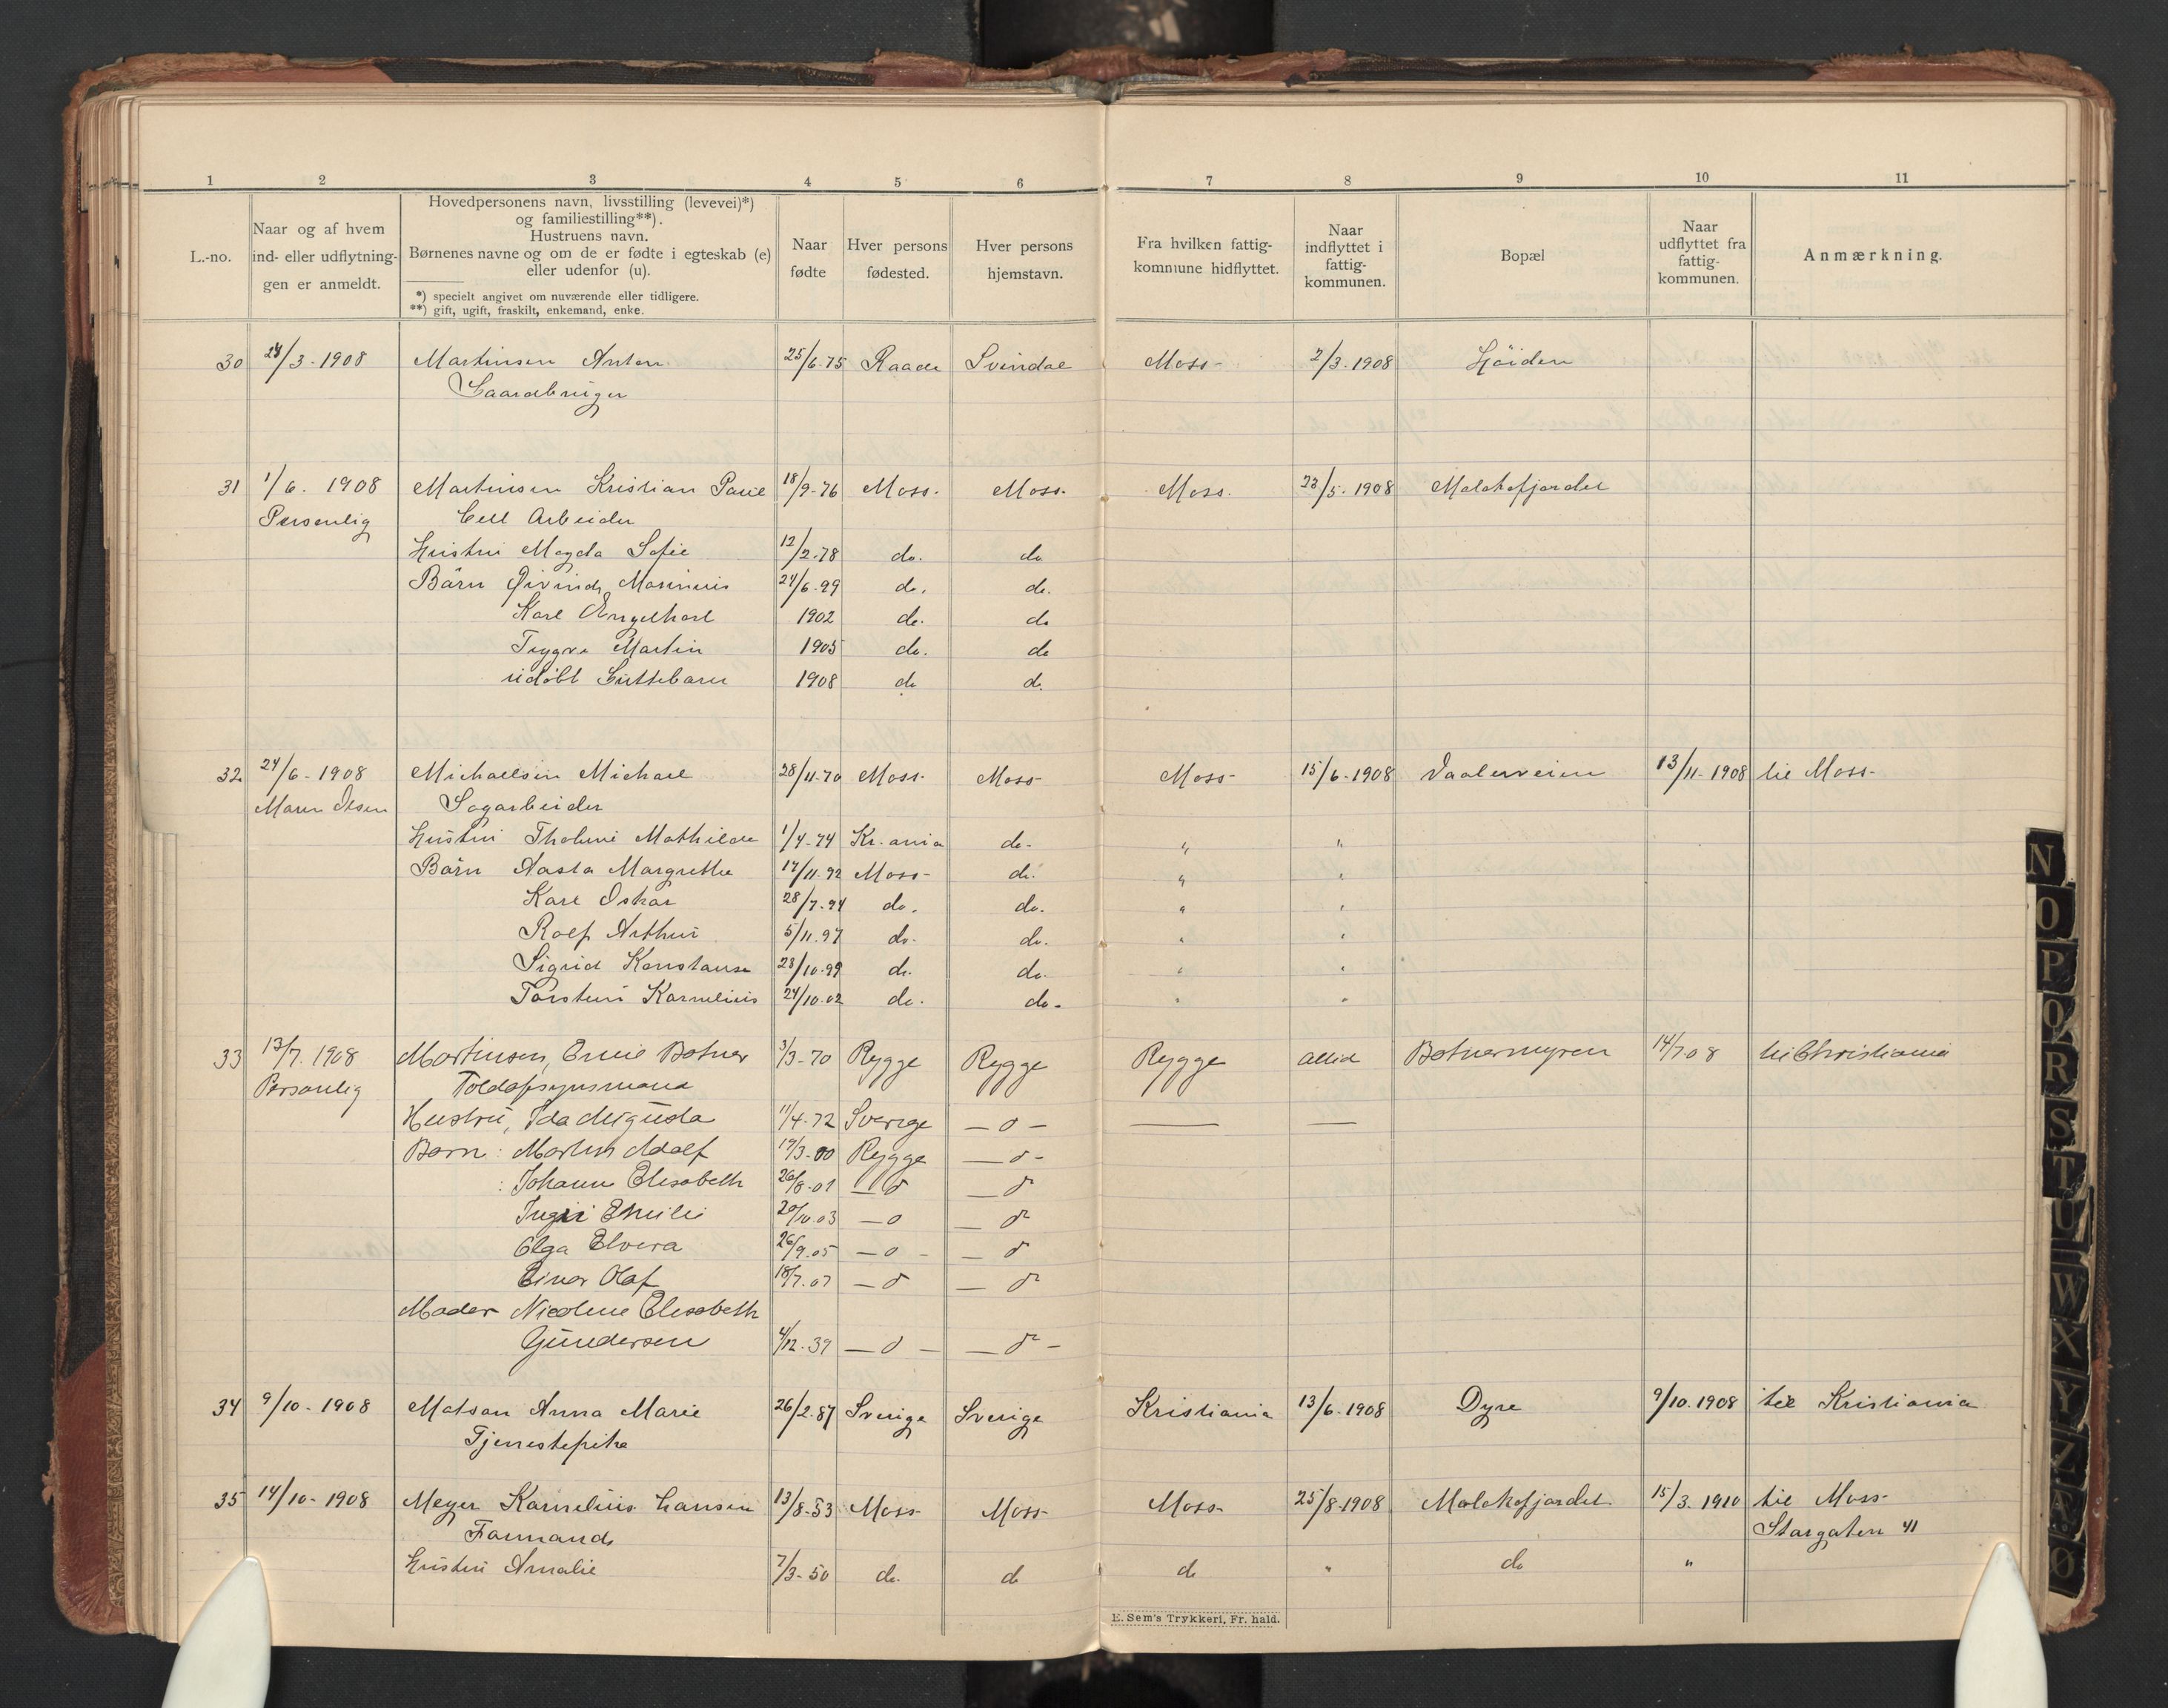 1 2 3 4 5 6 7 8 9 10 11
L.-no.
Naar og af hvem
ind- eller udflytnin-
gen er anmeldt.
Hovedpersonens navn, livsstilling (levevei)*)
og familiestilling**).
Hustruens navn.
Børnenes navne og om de er fødte i egteskab (e)
eller udenfor (u).
*) specielt angivet om nuværende eller tidligere.
**) gift, ugift, fraskilt, enkemand, enke.
Naar
fødte
Hver persons
fødested.
Hver persons
hjemstavn.
Fra hvilken fattig-
kommune hidflyttet.
Naar
indflyttet i
fattig-
kommunen.
Bopæl
Naar
udflyttet fra
fattig-
kommunen.
Anmærkning.
30 24/3-1908 Martinsen Anton 25/6-75 Raade Svindal Moss- 2/3-1908 Höiden
Gaardbruger
31 1/6. 1908 Martinsen Kristian Paul 18/9-76 Moss. Moss. Moss. 23/5-1908 Molekefjordet
Personlig Cell Arbeider
Hustru Magda Sofie 12/2-78 do. do.
Børn Øivind Marinius 24/6-99 do. do.
Karl Engelhart 1902 do. do
Trygve Martin 1905 do. do
udöbt Guttebarn 1908 do do.
32 24/6-1908 Michaelsen Michael 28/11-70 Moss- Moss- Moss- 15/6-1908 Vaalerveien 13/11-1908 til Moss-
Maren Olsen Sagarbeider
Hustru Thomine Mathilde 1/4-74 Kr.ania do- " "
Børn Aasta Margrethe 17/11.92 Moss- do. " "
Karl Oskar 28/7-94 do. do. " "
Rolf Arthur 5/11.97 do. do. " "
Sigrid Konstanse 23/10-99 do. do. " "
Torsten Kornelius 24/10.02 do. do- " "
33 13/7. 1908 Martinsen, Emil Botner 3/3-70 Rygge Rygge Rygge altid Botnermyren 14/7 08 til Christiania
Personlig Toldopsynsmand
Hustru, Ida Augusta 11/4-72 Sverige — o —
Børn: Martin Adolf 19/3-00 Rygge — o -
: Johanne Elisabeth 26/8-01 — o — o
Ingri Emilie 20/10.03 — o — o
Olga Elvira 26/9.05 — o - — o
Einar Olaf 18/7.07 — o — o
Moder Nicoline Elisabeth
Gundersen 4/12-39 — o — — o -
34 9/10-1908 Matson Anna Marie 26/2-87 Sverige Sverige Kristiania 13/6-1908 Dyre 9/10.1908 til Kristiania
Tjenestepike
35 14/10-1908 Meyer Kornelius Hansen 13/8-53 Moss- Moss- Moss- 25/8-1908 Molekefjordet 15/3.1910 til Moss-
Formand Storgaten 41
Hustru Amalie 7/3-50 do. do do " do "
E. Sem's Trykkeri, Fr. hald.
N
O
P
Q
R
S
T
U
W
X
Y
Z
Æ
Ø